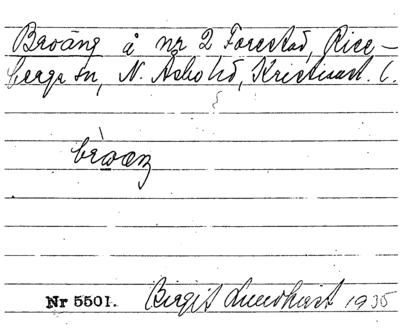 Broäng å nr 2 Forestad, Rice-
berga sn, N. Åsbo hd, Kristianst. l.
Nr 5501. Birgit Lundkvist 1935